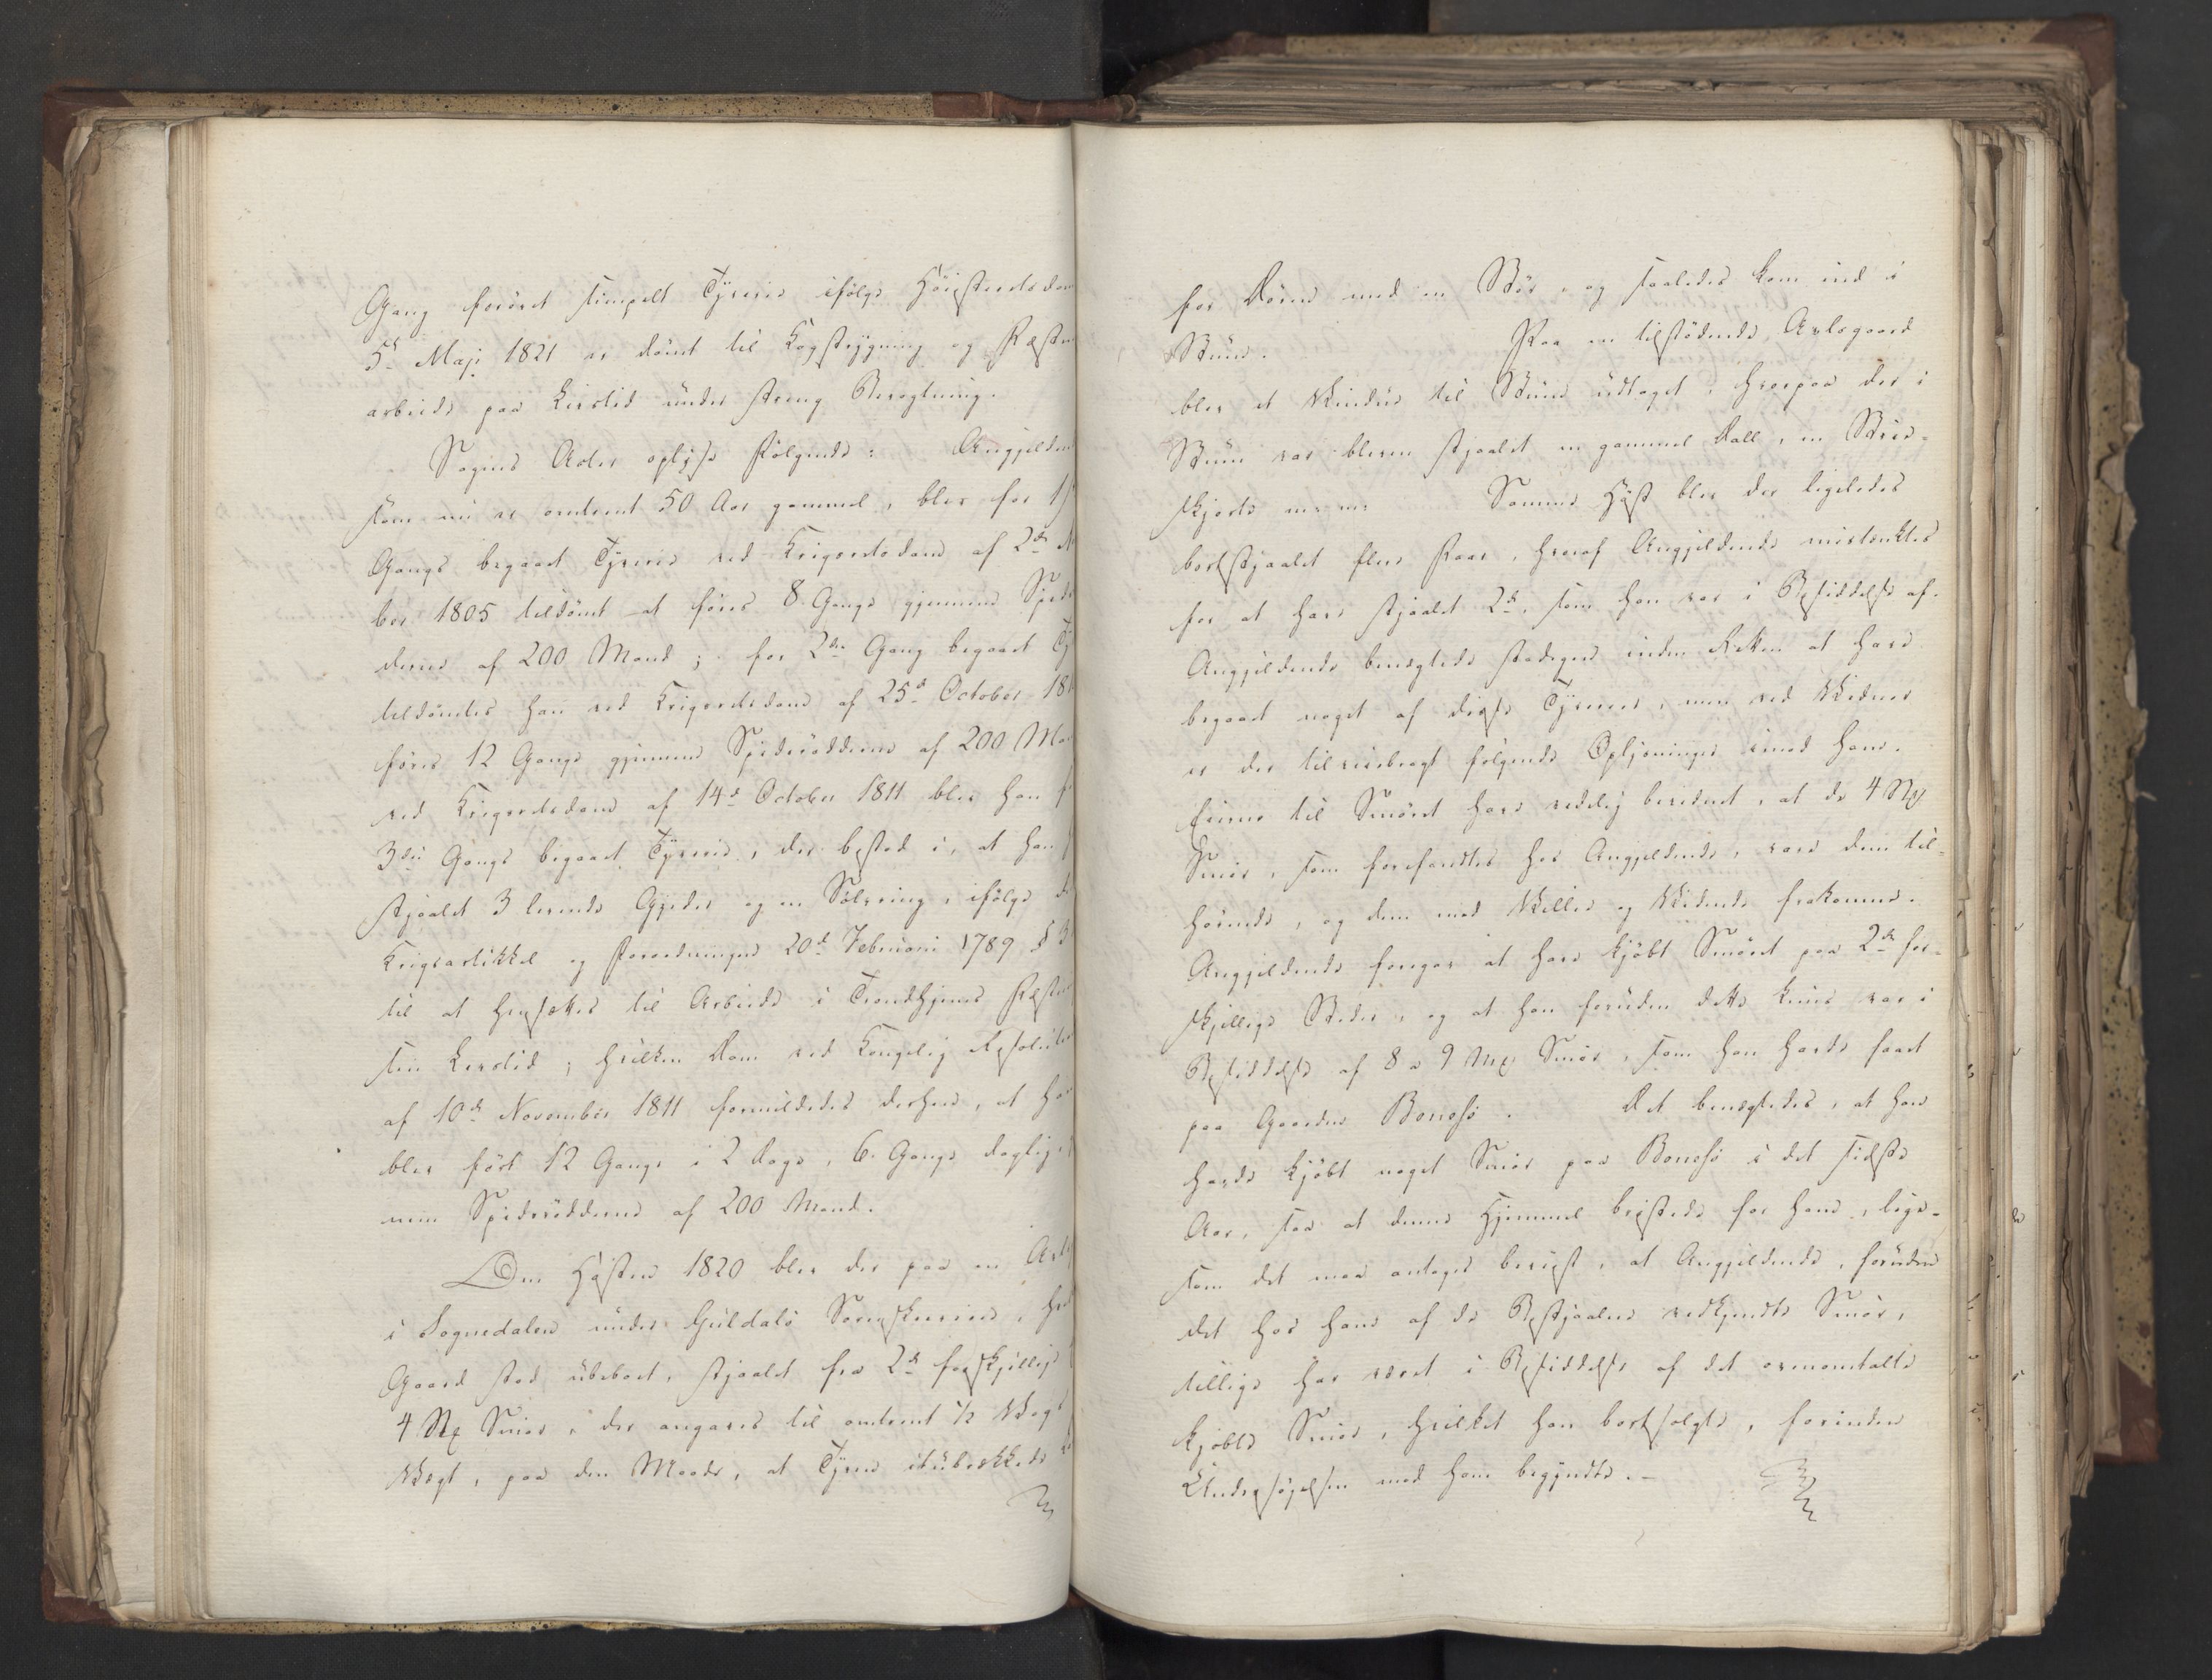 Gang forövet simpelt Tyverie ifölge Höiesteretsdom
5te Maji 1821 er dömt til Kagstrygning og Fæstn
arbeide paa Livstid under streng Bevogtning.
Sagens Acter oplyse Fölgende: Angjeldend
som nu er omtrent 50 Aar gammel, blev for 1st
Gangs begaaet Tyverie ved Krigsretsdom af 2den
ber 1805 tildömt at föres 8 Gange gjennem Spids
derne af 200 Mand; for 2den Gang begaaet Ty
tildömtes han ved Krigsretsdom af 25de October 18
föres 12 Gange gjennem Spidsrödderne af 200 Man
ved Krigsretsdom af 14de October 1811 blev han f
3die Gangs begaaet Tyverie, der bestod i, at han
stjaalet 3 levende Gjeder og en Sölvring, ifölge d
Krigsartikkel og Forordningen 20de Februari 1789 § 3
til at hensættes til Arbeide i Trondhjems Fæstn
sin Livstid; hvilken Dom ved Kongelig Resolution
af 10de November 1811 formildedes derhen, at han
blev fört 12 Gange i 2 Dage, 6 Gange daglig,
nem Spidsrödderne af 200 Mand.
Om Hösten 1820 blev der paa en Avls
i Sognedalen under Guldals Sorenskriverie, hvil
Gaard stod ubeboet, stjaalet fra 2de forskjellige
4 Mk Smör, der angaves til omtrent 1/2 Vog
Vægt, paa den Maade, at Tyven itubrækkede
for Dören med en Stör, og saaledes kom ind i
Stuen. Paa en tilstödende Avlsgaard
blev et Vindue til Stuen udtaget, hvorpaa der i
Stuen var bleven stjaalet en gammel Dall, en Skind-
skjorte m. m. Samme Höst blev der ligeledes
bortstjaalet flere Faar, hvoraf Angjeldende mistænktes
for at have stjaalet 2de, som han var i Besiddelse af.
Angjeldende benægtede stedse inden Retten at have
begaaet noget af disse Tyverier, men ved Vidner
er der tilveiebragt fölgende Oplysninger imod ham.
Eierne til Smöret have edelig bevidnet, at de 4 Mk
Smör, som forefandtes hos Angjeldende, vare dem til-
hörende, og dem mod Villie og Vidende frakomne.
Angjeldende foregav at have kjöbt Smöret paa 2de for-
skjellige Steder, og at han foruden dette kuns var i
Besiddelse af 8 a 9 Mk Smör, som han havde faaet
paa Gaarden Bonesö. Det benægtedes, at han
havde kjöbt noget Smör paa Bonesö i det sidste
Aar, saa at denne Hjemmel bristede for ham, lige-
som det maa antages beviist, at Angjeldende, foruden
det hos ham af de Bestjaalne vedkjendte Smör,
tillige har været i Besiddelse af det ovenomtalte
kjöbte Smör, hvilket han bortsolgte, forinden
Undersögelsen mod ham begyndte.-